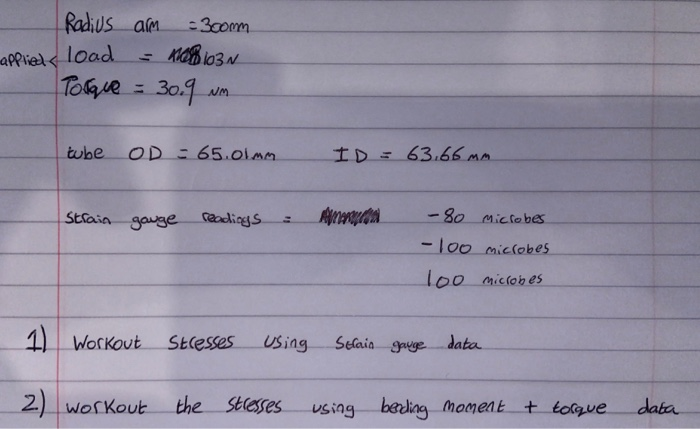 Radius arm = 300mm
applied < load = 103N
Torque = 30.9 NM
tube OD = 65.01mm ID = 63.66 mm
Strain gauge readings = -80 microbes
-100 microbes
100 microbes
1) Workout Stresses using Strain gauge data
2) workout the stresses using bending moment + torque data